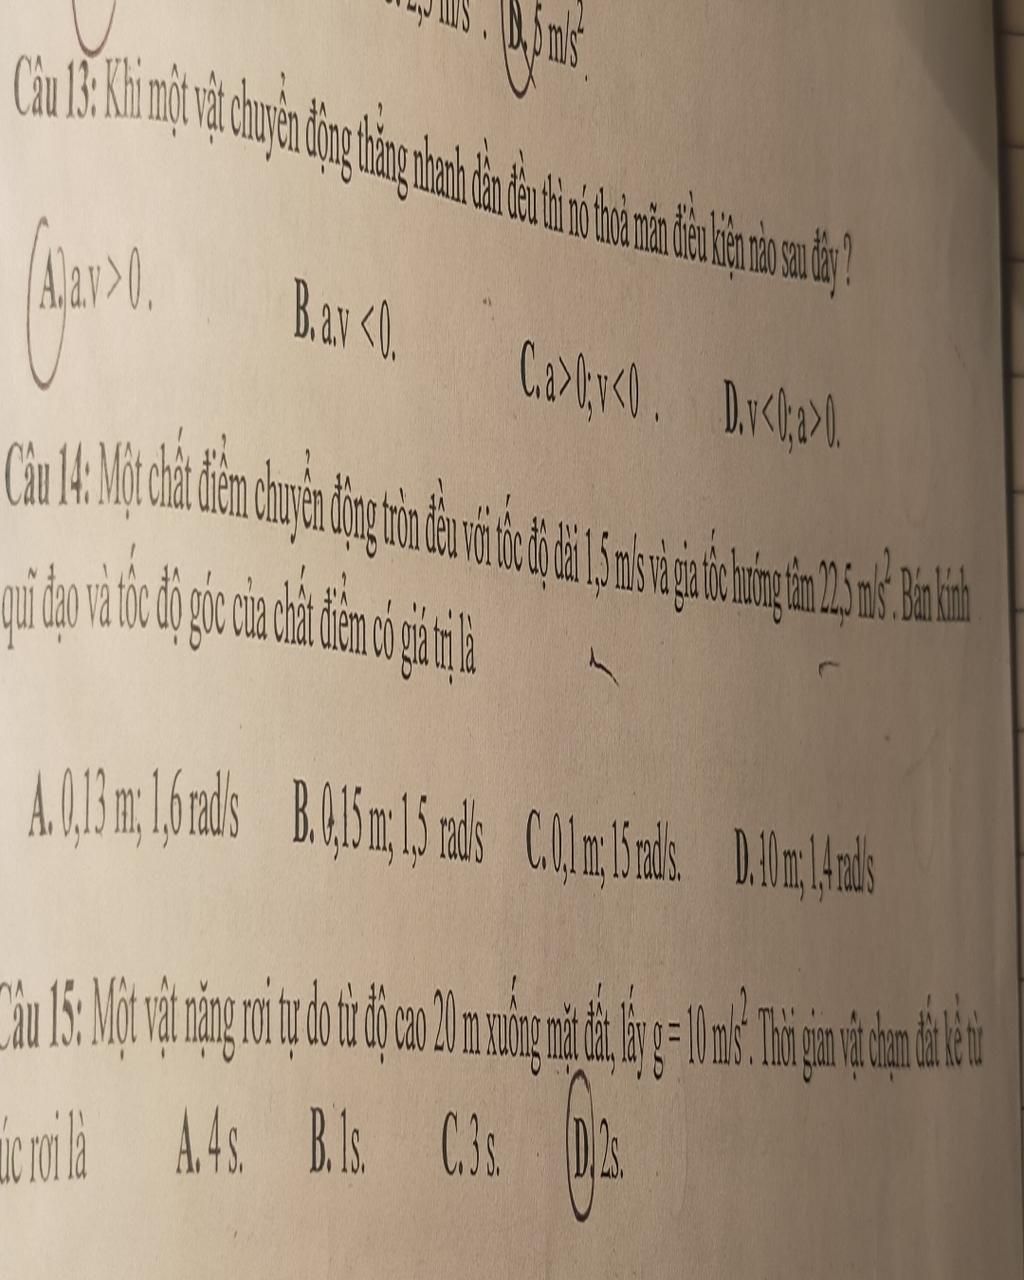 2,5 m/s . D. 5 m/s²
Câu 13: Khi một vật chuyển động thẳng nhanh dần đều thì nó thoả mãn điều kiện nào sau đây ?
A. a.v > 0 . B. a.v < 0. C. a > 0; v < 0 . D. v < 0; a > 0.
Câu 14: Một chất điểm chuyển động tròn đều với tốc độ dài 1,5 m/s và gia tốc hướng tâm 22,5 m/s². Bán kính
quĩ đạo và tốc độ góc của chất điểm có giá trị là
A. 0,13 m; 1,6 rad/s B. 0,15 m; 1,5 rad/s C. 0,1 m; 15 rad/s. D. 10 m; 1,4 rad/s
Câu 15: Một vật nặng rơi tự do từ độ cao 20 m xuống mặt đất, lấy g = 10 m/s². Thời gian vật chạm đất kể từ
úc rơi là A. 4 s. B. 1s. C. 3 s. D. 2s.